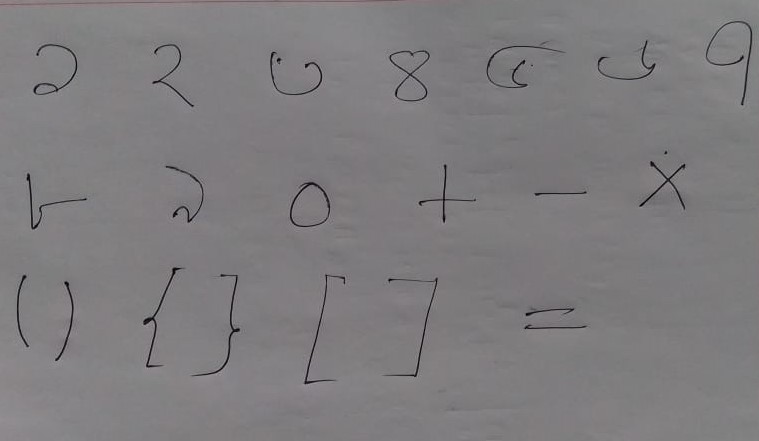 ১ ২ ৩ ৪ ৫ ৬ ৭
৮ ৯ ০ + - ×
( ) { } [ ] =